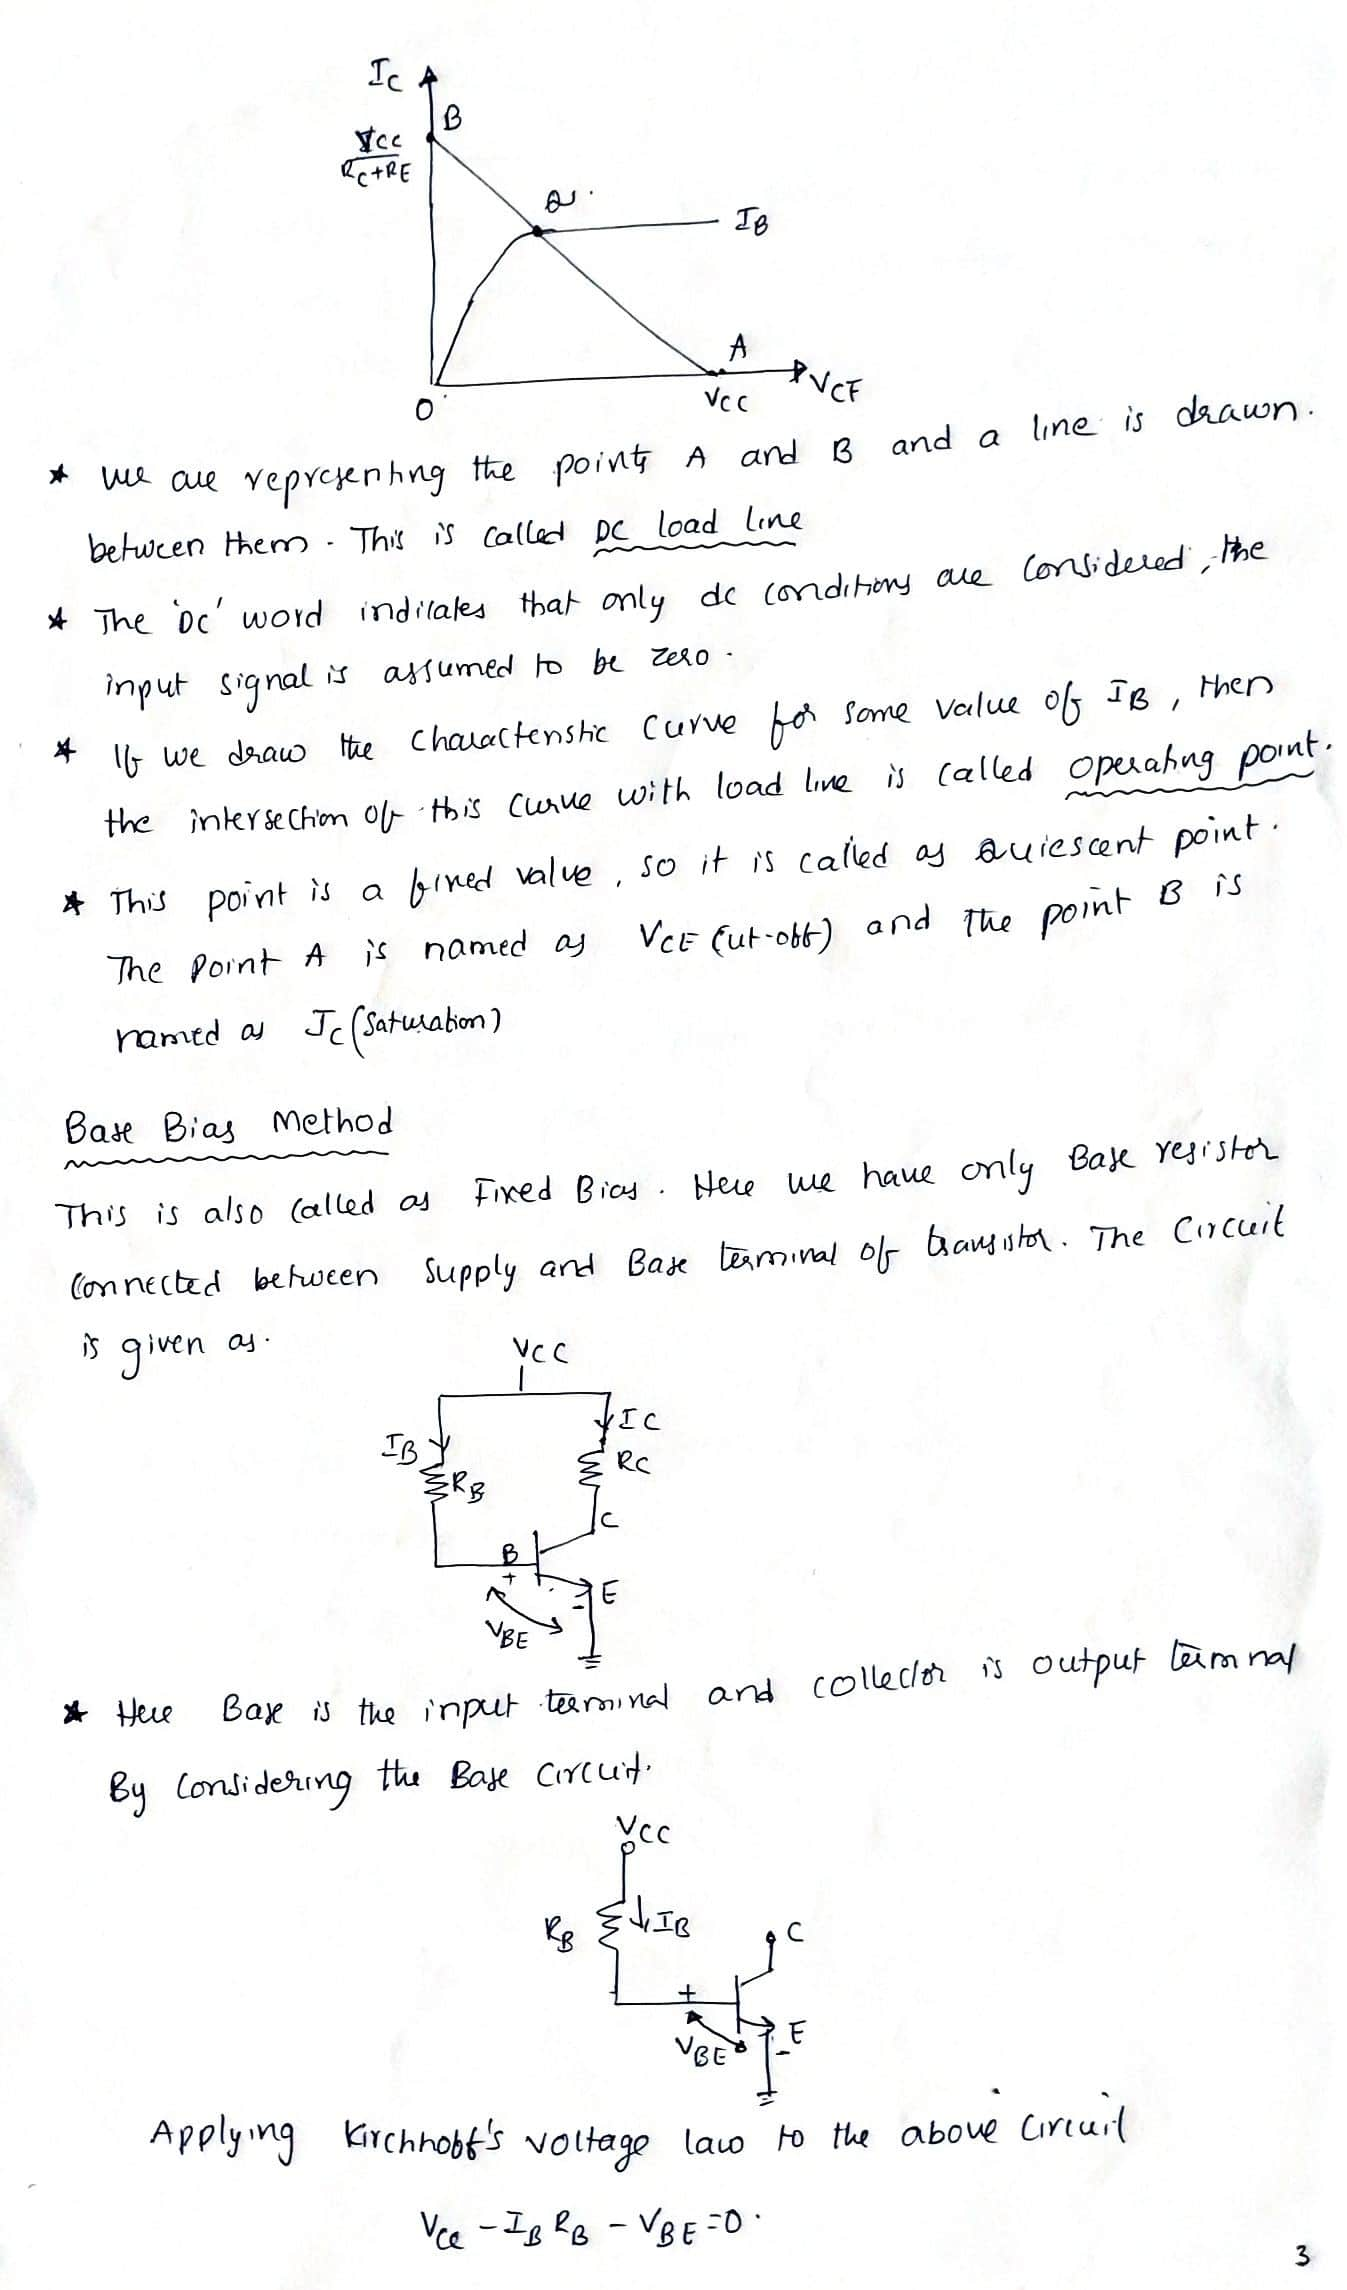 Ic
B
Vcc
Rc+RE
Q
IB
A
VCE
O
Vcc
* we are representing the points A and B and a line is drawn.
between them. This is called DC load line
* The 'DC' word indicates that only dc conditions are considered, the
input signal is assumed to be zero.
* If we draw the characteristic curve for some value of IB, then
the intersection of this curve with load line is called operating point.
* This point is a fixed value, so it is called as Quiescent point.
The Point A is named as VCE (cut-off) and The point B is
named as Ic (Saturation)
Base Bias Method
This is also called as Fixed Bias. Here we have only Base resistor
Connected between Supply and Base terminal of transistor. The Circuit
is given as.
VCC
IC
IB
RC
RB
C
B
+
E
-
VBE
* Here Base is the input terminal and collector is output terminal
By Considering the Base Circuit.
VCC
RB
IB
C
+
E
VBE
-
Applying Kirchhoff's voltage law to the above circuit
Vcc - IB RB - VBE = 0.
3